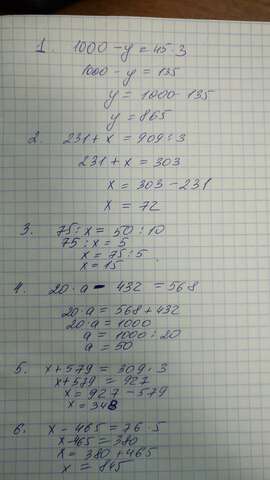 1. 1000 - y = 45 · 3
1000 - y = 135
y = 1000 - 135
y = 865
2. 231 + x = 909 : 3
231 + x = 303
x = 303 - 231
x = 72
3. 75 : x = 50 : 10
75 : x = 5
x = 75 : 5
x = 15
4. 20 · a - 432 = 568
20 · a = 568 + 432
20 · a = 1000
a = 1000 : 20
a = 50
5. x + 579 = 309 · 3
x + 579 = 927
x = 927 - 579
x = 348
6. x - 465 = 76 · 5
x - 465 = 380
x = 380 + 465
x = 845